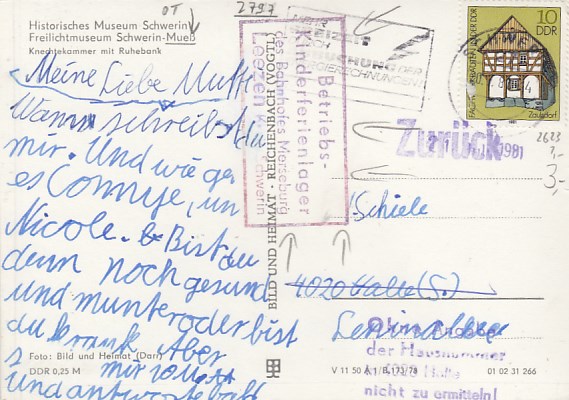 OT
2797
Historisches Museum Schwerin
Freilichtmuseum Schwerin-Mueß
Knechtekammer mit Ruhebank
Meine Liebe Mutti
Wann schreibst du
mir. Und wie
es Connye, un
Nicole. Bist du
denn noch gesund
und munter oder bist
du krank. Aber
mir
und antworte bald
Foto: Bild und Heimat (Darr)
DDR 0,25 M
BILD UND HEIMAT · REICHENBACH (VOGTL)
Betriebs-
Kinderferienlager
des Bahnhofes Merseburg
Leezen Kr. Schwerin
10
DDR
Zaulsdorf
Zurück
1981
2623
1,-
3,-
Schiele
4020 Halle (S.)
Leninallee
Ohne Angabe
der Hausnummer
in 4020 Halle
nicht zu ermitteln!
V 11 50 A 1/B 173/78
01 02 31 266